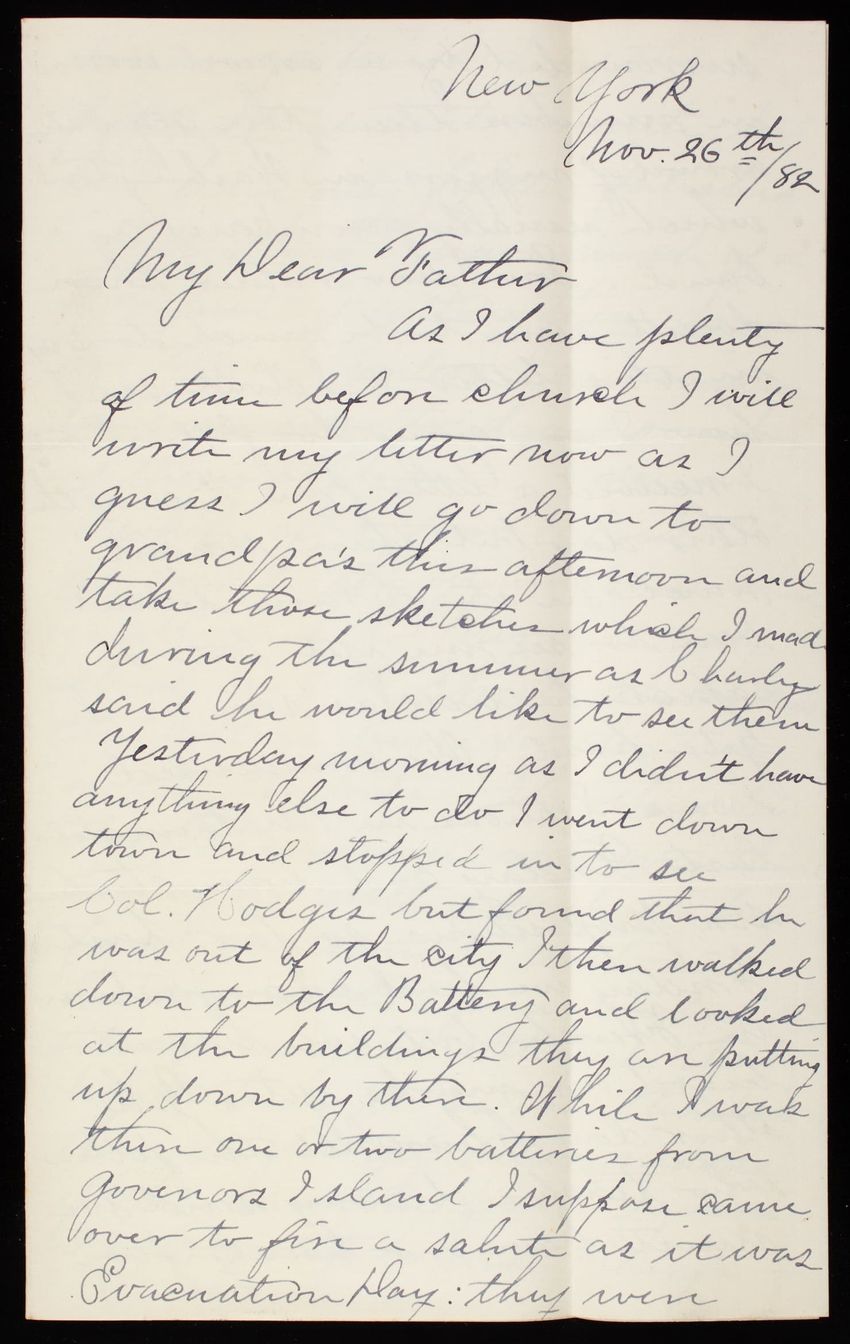 New York
Nov. 26th/82
My Dear Father
As I have plenty
of time before church I will
write my letter now as I
guess I will go down to
grandpa's this afternoon and
take those sketches which I made
during the summer as Charley
said he would like to see them
Yesterday morning as I didn't have
anything else to do I went down
town and stopped in to see
Col. Hodges but found that he
was out of the city I then walked
down to the Battery and looked
at the buildings they are putting
up down by there. While I was
there one or two batteries from
Govenors Island I suppose came
over to fire a salute as it was
Evacuation Day: they were